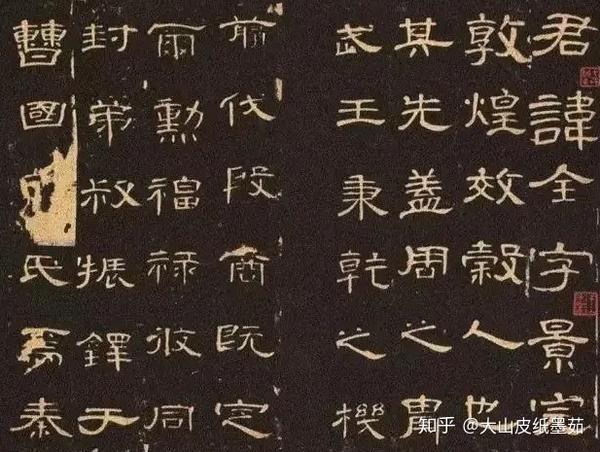 君諱全字景完
敦煌效穀人也
其先蓋周之胄
武王秉乾之機
翦伐殷商既定
爾勳福祿攸同
封弟叔振鐸于
曹國氏焉秦
知乎 @大山皮纸墨茹